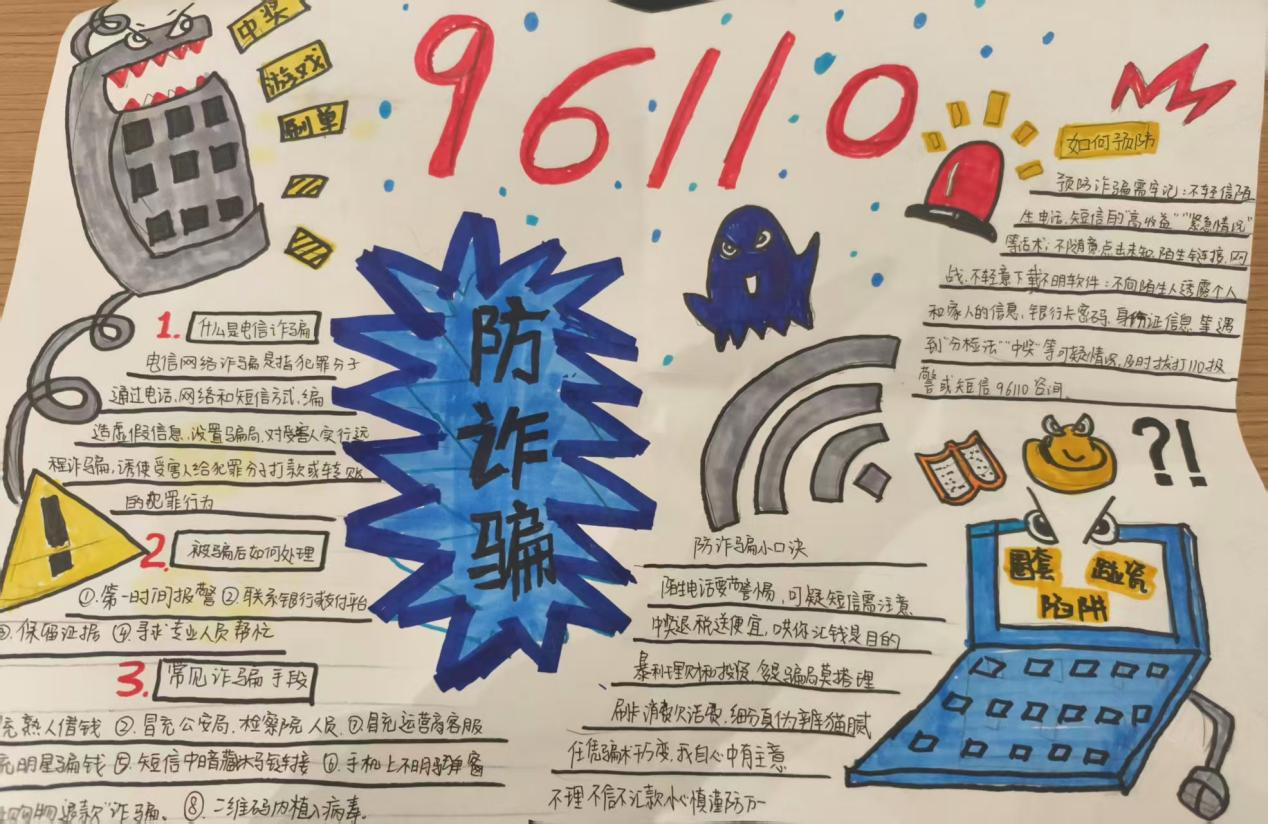 中奖
游戏
刷单
96110
防诈骗
1. 什么是电信诈骗
电信网络诈骗是指犯罪分子
通过电话、网络和短信方式,编
造虚假信息,设置骗局,对受害人实行远
程诈骗,诱使受害人给犯罪分子打款或转账
的犯罪行为
2. 被骗后如何处理
①.第一时间报警 ②.联系银行或支付平台
③.保留证据 ④.寻求专业人员帮忙
3. 常见诈骗手段
充熟人借钱 ②.冒充公安局、检察院人员.③.冒充运营商客服
充明星骗钱 ⑤.短信中暗藏木马链接 ⑥.手机上不明弹窗
购物退款"诈骗、⑧.二维码内植入病毒.
如何预防
预防诈骗需牢记:不轻信陌
生电话、短信的"高收益""紧急情况"
等话术;不随意点击未知、陌生链接、网
战、不轻意下载不明软件;不向陌生人透露个人
和家人的信息、银行卡密码、身份证信息,
到"分检法""中奖"等可疑情况,及时拔打110报
警或短信96110咨询.
?!
圈套
陷阱
防诈骗小口决
陌生电话要警惕,可疑短信需注意
中奖退税送便宜,哄你汇钱是目的
暴利理财和投资,骗局莫搭理
刷卡消费欠话费,细分真伪辩猫腻
任凭骗术千万变,我自心中有主意
不理不信不汇款小心慎谨防万一